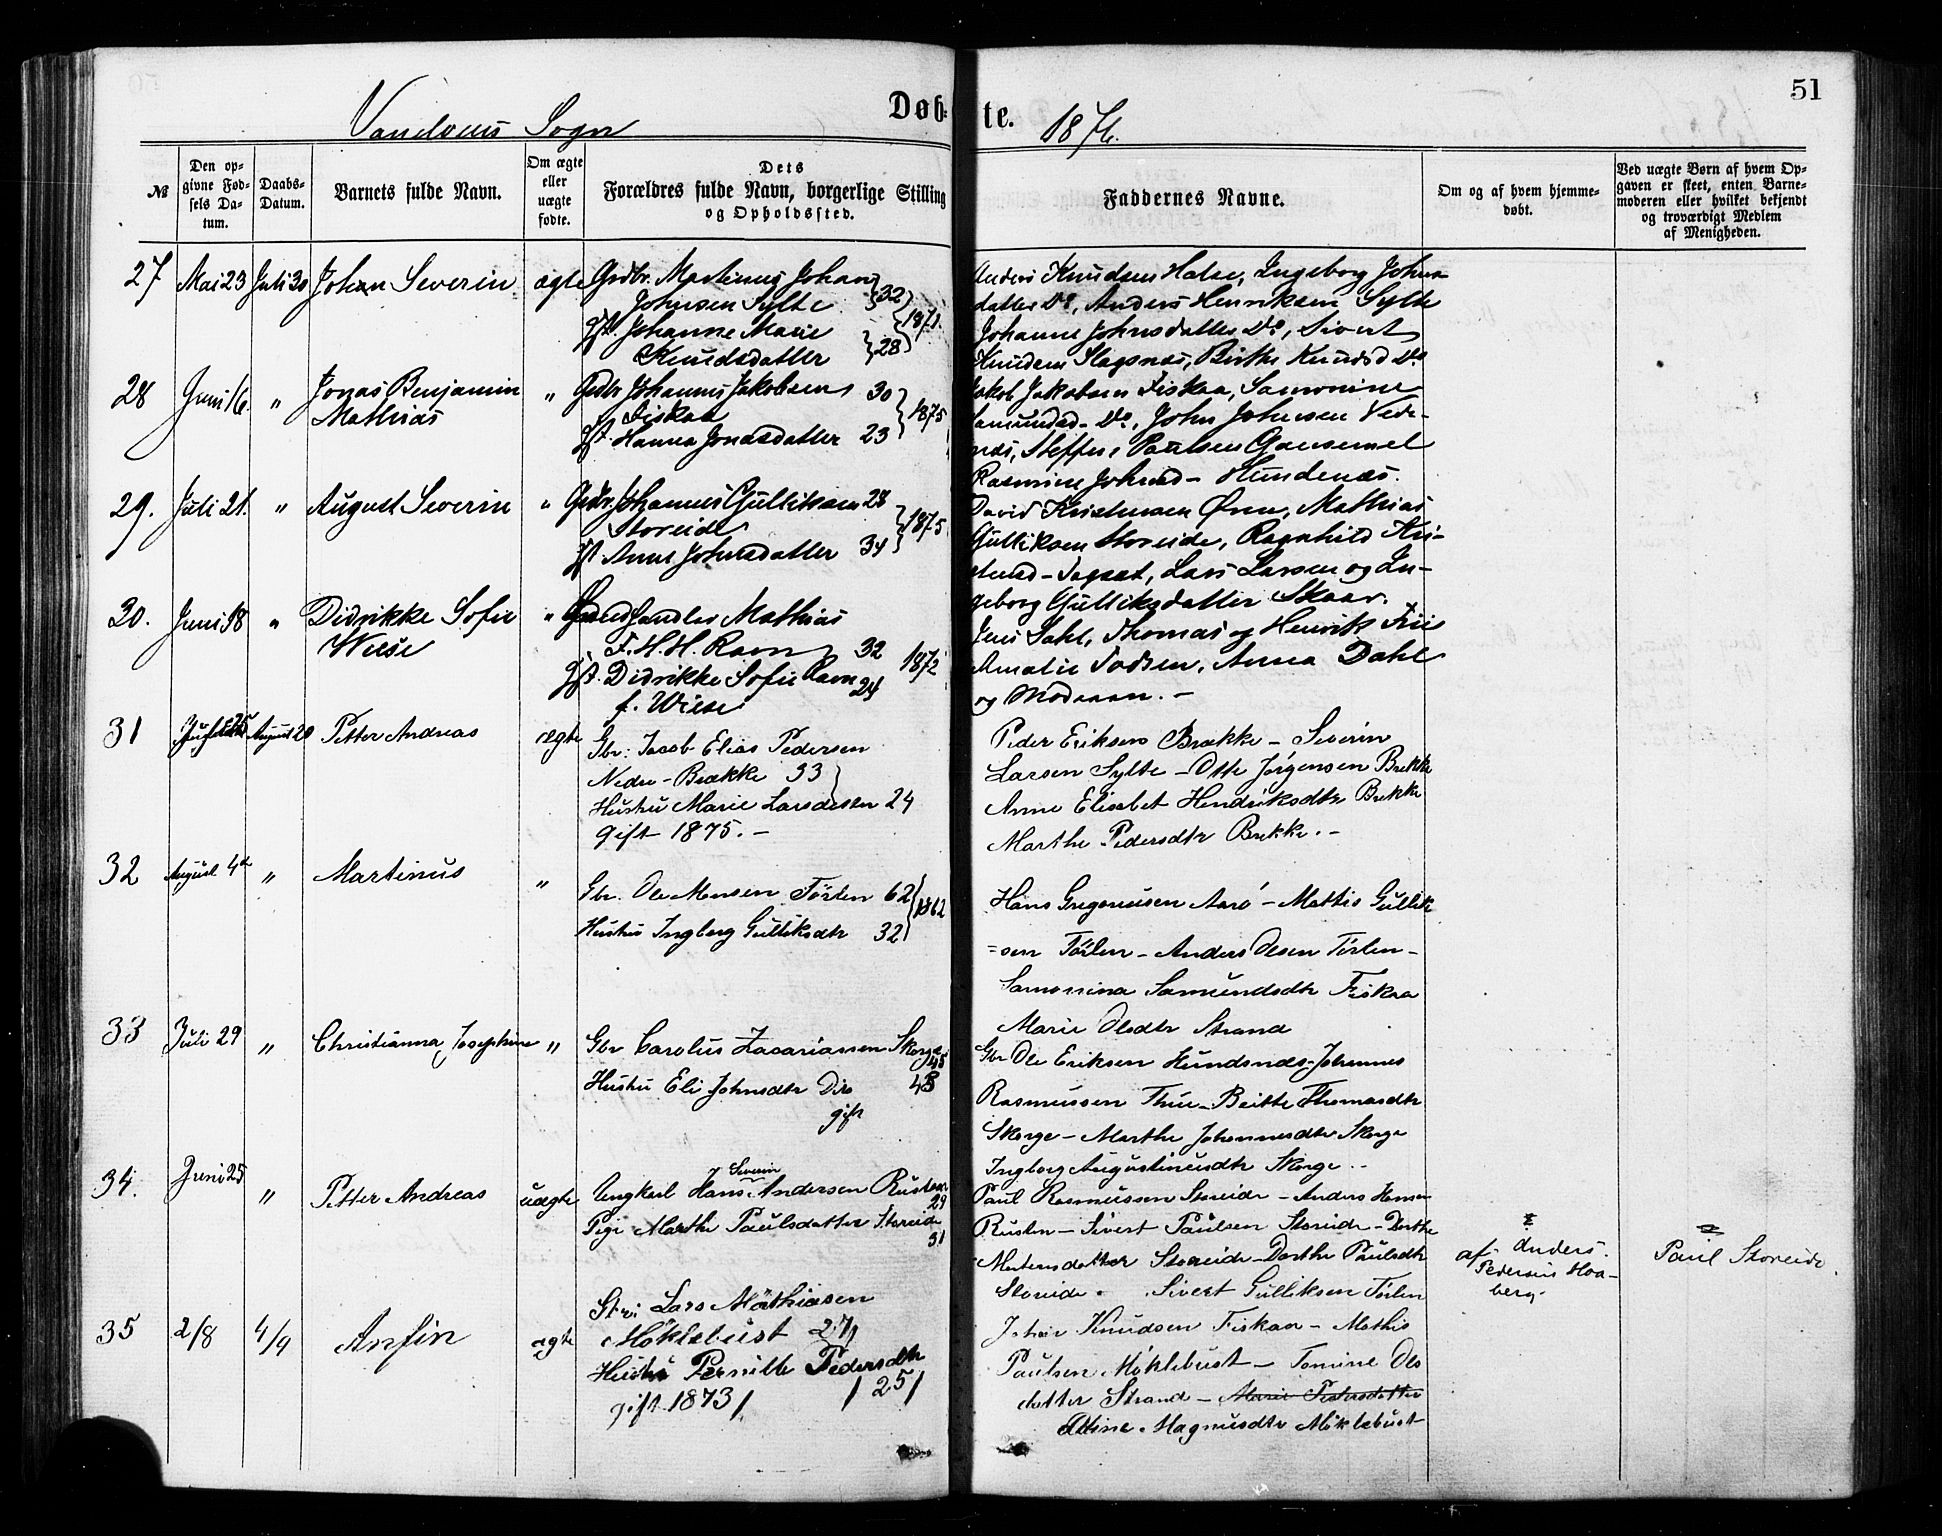 51
Vandvens Sogn
Døb-
te.
1876.
№
Den op-
givne Fød-
sels Da-
tum.
Daabs-
Datum.
Barnets fulde Navn.
Om ægte
eller
uægte
fødte.
Dets
Forældres fulde Navn, borgerlige Stilling
og Opholdssted.
Faddernes Navne.
Om og af hvem hjemme-
døbt.
Ved uægte Børn af hvem Op-
gaven er skeet, enten Barne-
moderen eller hvilket bekjendt
og troværdigt Medlem
af Menigheden.
27 Mai 23 Juli 30 Johan Severin ægte Grdbr. Martinus Johan
Johnsen Sylte 32
gft. Johanne Marie 1871.
Knudsdatter 28
Anders Knudsen Halse, Ingeborg Johns-
datter Do, Anders Henriksen Sylte
Johanne Johnsdatter Do, Sivert
Knudsen Slagsnæs, Birthe Knudsd Do
28 Juni 16. " Jonas Benjamin
Mathias
" Grdbr Johannes Jakobsen 30
Fiskaa 1875
gft. Hanna Jonasdatter 23
Jakob Jakobsen Fiskaa, Samonine
Samundsd- Do, John Johnsen Vede-
næs, Steffen Paulsen Gausemel
Rasmine Johnsd- Hundsnæs.
29. Juli 21. " August Severin " Grdbr. Johannes Gulliksen 28
Storeide 1875
gft Anne Johnsdatter 34
David Kristensen Øren, Mathias
Gulliksen Storeide, Ragnhild Kri-
stensd- Lars Larsen og In-
geborg Gulliksdatter Skaar.
30. Juni 18 " Didrikke Sofie
Wiese
" Landhandler Mathias
F. H. H. Ravn 32
gft. Didrikke Sofie Ravn 24 1872
f. Wiese
Jens Dahl, Thomas og Henrik Friis
Amalie Todsen, Anna Dahl
og Moderen. -
31 25 August 20 Petter Andreas ægte Gbr: Jacob Elias Pedersen
Nedre-Brække 33
Hustru Marie Larsdatter 24
gift 1875. -
Peder Eriksen Brække - Severin
Larsen Sylte - Otte Jørgensen Brekke
Anne Elisabet Hendriksdtr Brekke
Marthe Pedersdtr Brekke. -
32 August 4de " Martinus " Gbr. Ole Monsen Törlen 62
Hustru Ingberg Gulliksdtr 32 1862
Hans Gregoriusen Aarö - Mattis Gullik
=sen Törlen - Anders Olsen Törlen -
Samonina Samundsdtr Fiskaa
Marie Olsdtr Strand
33 Juli 29 " Christianna Josephine " Gbr Carolus Zacariassen Skorge
45
Hustru Eli Johnsdtr Dito 43
gift
Gbr Ole Eriksen Hundsnæs-Johannes
Rasmussen Thue - Beitte Thomasdtr
Skorge - Marthe Johannesdtr Skorge
Ingborg Augustinusdtr Skorge. -
34. Juni 25 " Petter Andreas uægte Ungkarl Hans Severin Andersen Rusten
29
Pige Marthe Paulsdatter Storeide
31
Paul Rasmussen Storeide - Anders Hansen
Rusten - Sivert Paulsen Storeide - Dorthe
Mortensdatter Storeide - Dorthe Paulsdtr
Storeide. Sivert Gulliksen Törlen
af Anders
Pedersen Hoa-
berg.
Paul Storeide
35 2/8 4/9 Anfin ægte Lars Mathiasen
Möklebust 27
Hustru Pernille Pedersdtr
gift 1873 25
Johan Knudsen Fiskaa - Mathis
Paulsen Möklebust - Tomine Ols
datter Strand - Marie Pedersdatter
Oline Magnusdtr Möklebust